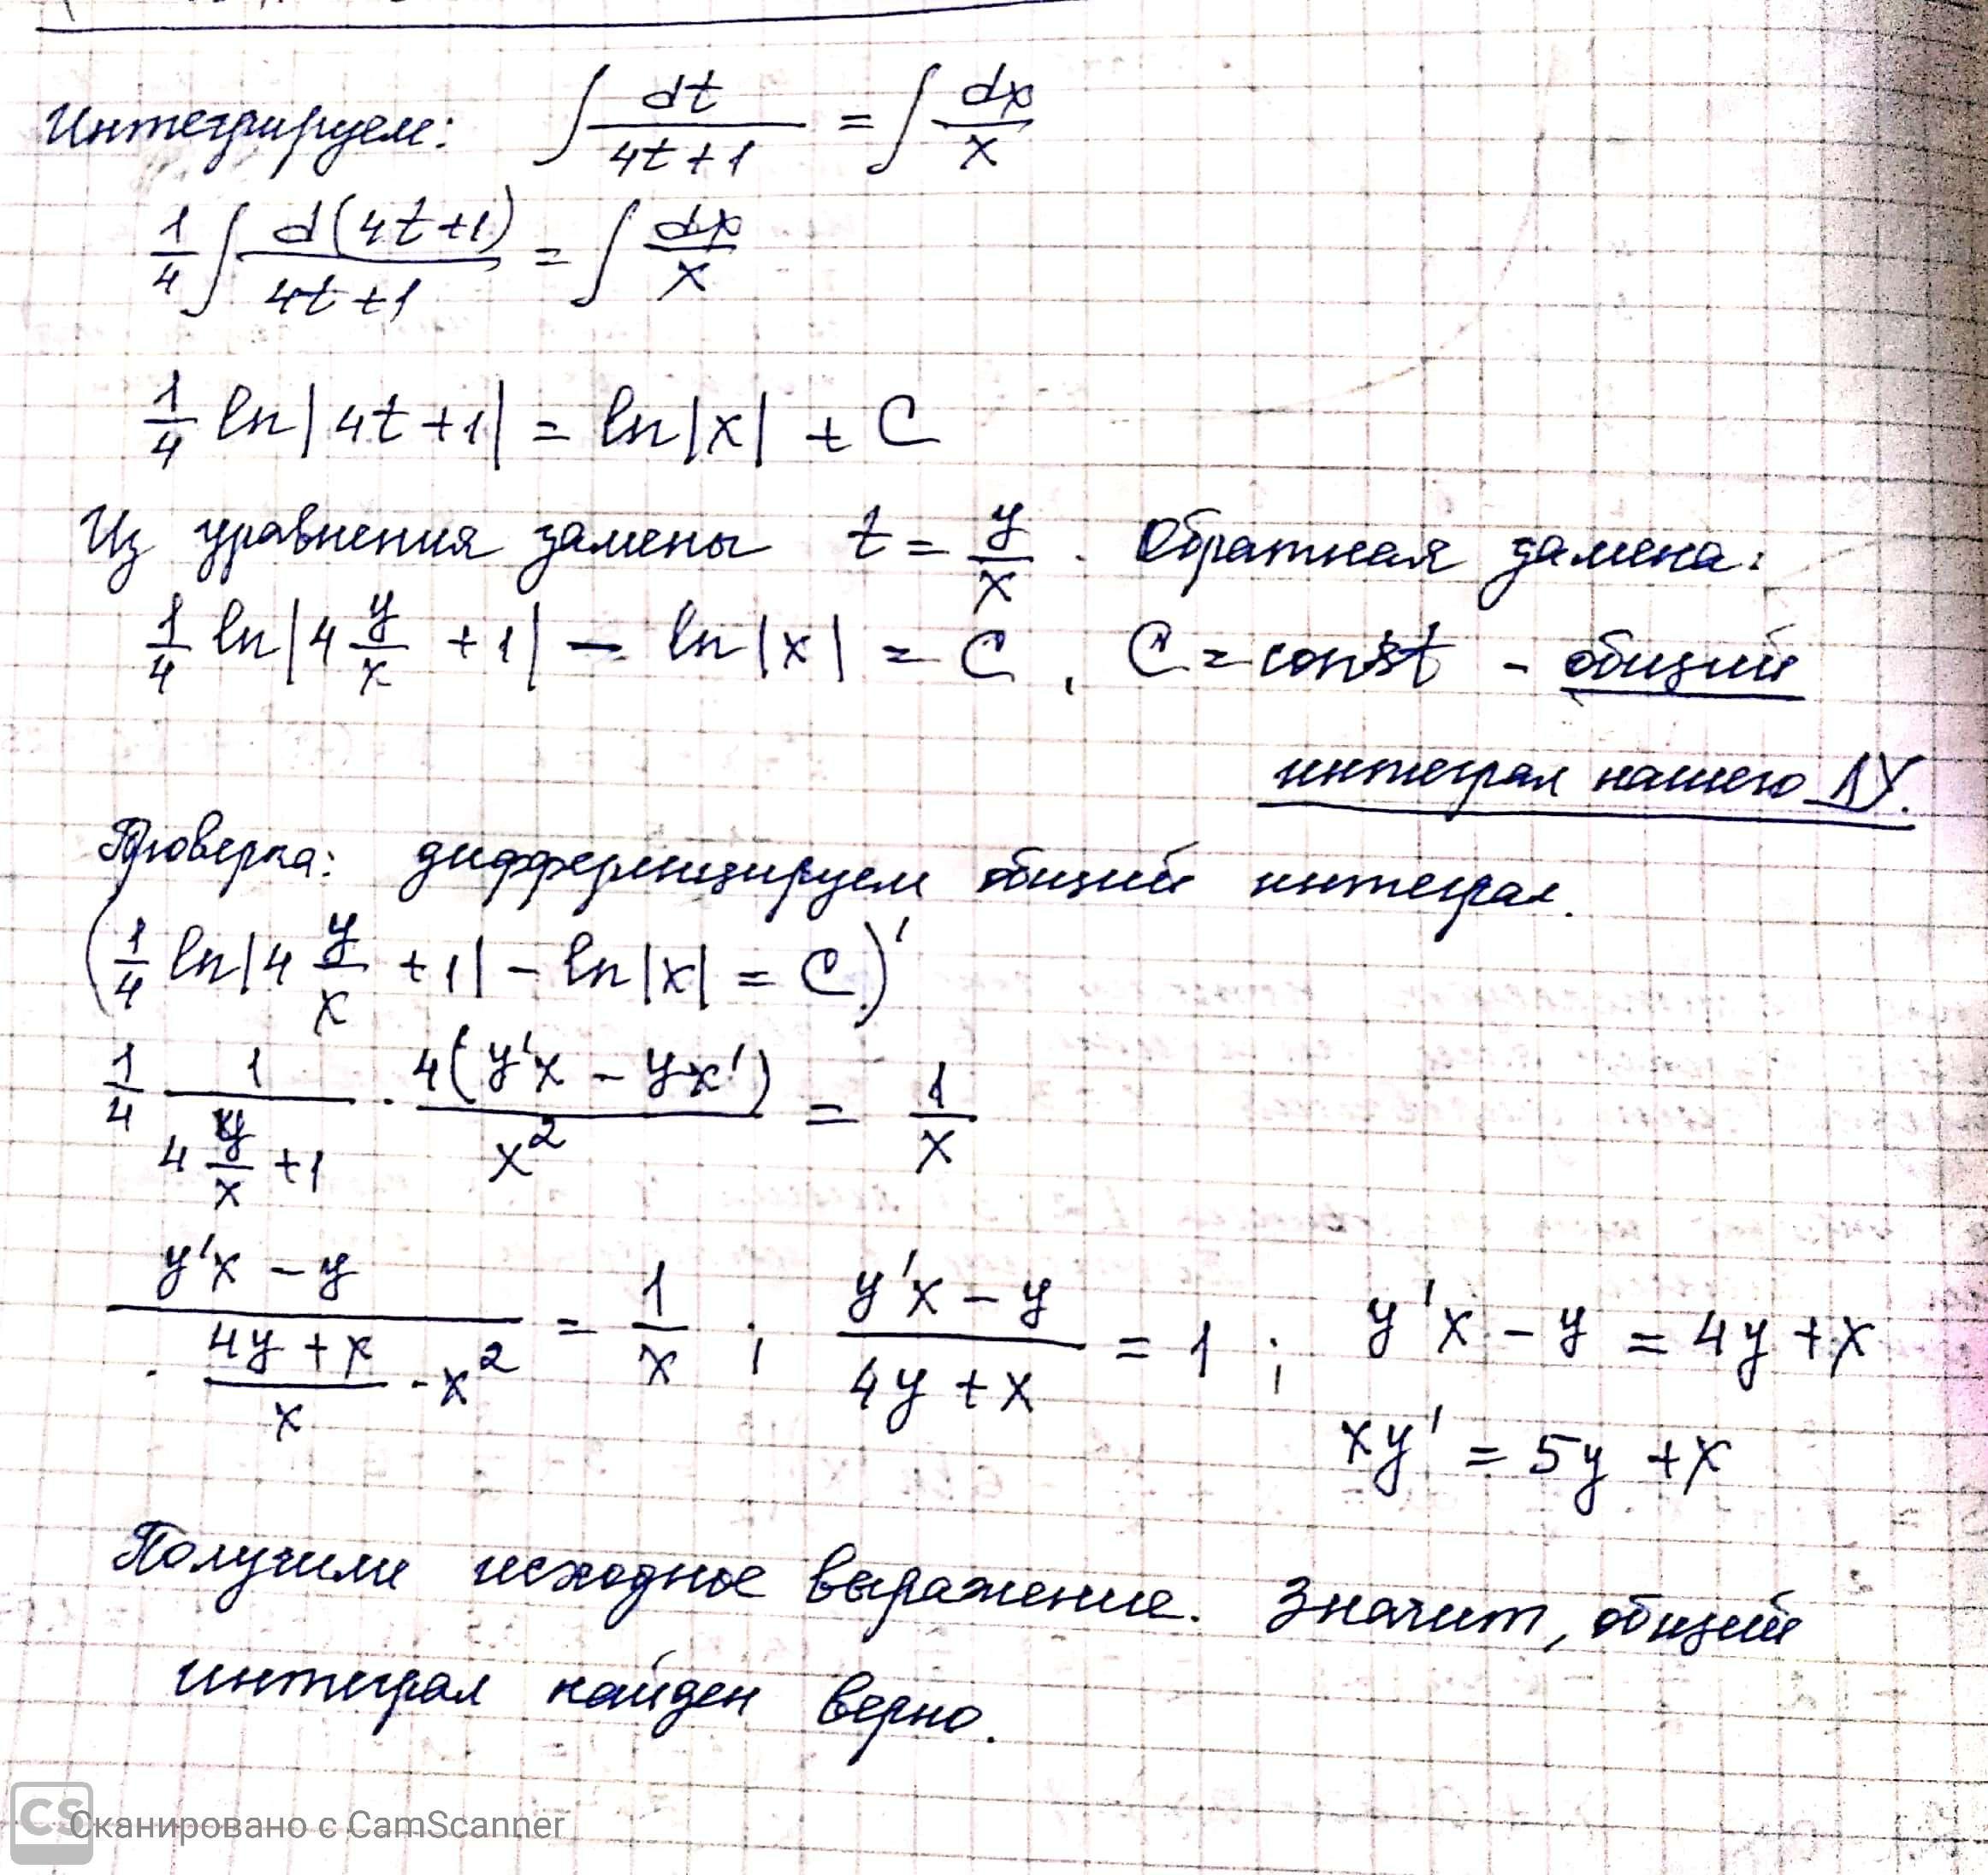 Интегрируем: ∫ dt/(4t+1) = ∫ dx/x
1/4 ∫ d(4t+1)/(4t+1) = ∫ dx/x
1/4 ln|4t+1| = ln|x| + C
Из уравнения замены t = y/x. Обратная замена:
1/4 ln|4 y/x + 1| - ln|x| = C, C = const - общий
интеграл нашего ДУ.
Проверка: дифференцируем общий интеграл.
(1/4 ln|4 y/x + 1| - ln|x| = C)'
1/4 1/(4 y/x + 1) · 4(y'x - yx')/x² = 1/x
(y'x - y)/((4y+x)/x · x²) = 1/x ; (y'x - y)/(4y+x) = 1 ; y'x - y = 4y + x
xy' = 5y + x
Получили исходное выражение. Значит, общий
интеграл найден верно.
CS Сканировано с CamScanner